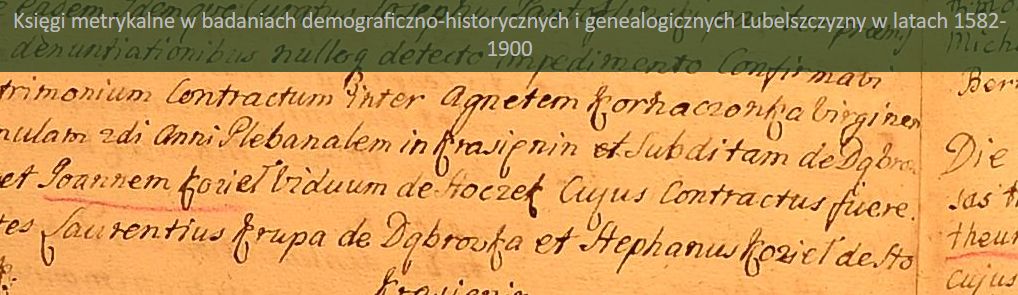 Księgi metrykalne w badaniach demograficzno-historycznych i genealogicznych Lubelszczyzny w latach 1582-
1900
denuntiationibus nulloq detecto impedimento Confirmavi
trimonium Contractum Inter Agnetem Korhaczonka virginem
mulam 2di Anni Plebanalem in Krasienin et Subditam de Dąbrow
et Joannem Kozieł viduum de Stoczek Cujus Contractus fuere
tes Laurentius Krupa de Dąbrowka et Stephanus Kozieł de Sto
Krasienin
Mich
Ber
Die
sas
theu
cujus